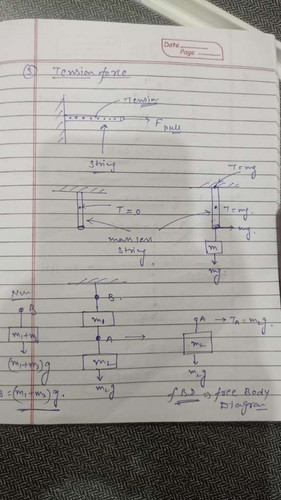 Date
Page
③ Tension force
Tension
F pull
String
T=mg
T=0
T=mg.
mg
massless
string.
m
mg.
Num
B
B.
m1+m2
m1
A
A → TA=m2g.
m2
m2
(m1+m2)g
m2g
m2g
B=(m1+m2)g.
fBD → free Body
Diagram